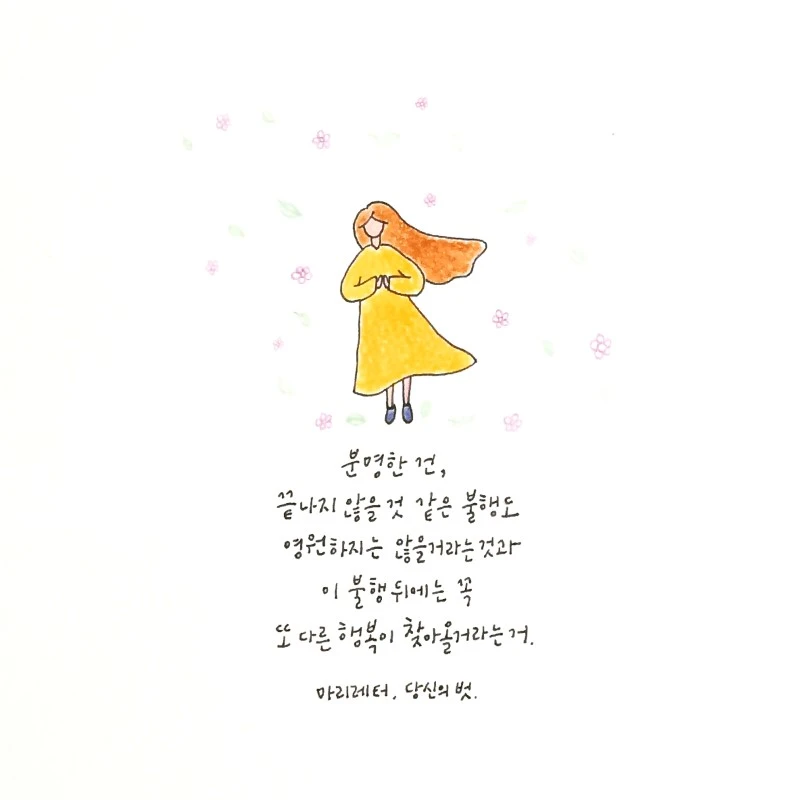 분명한 건,
끝나지 않을 것 같은 불행도
영원하지는 않을거라는 것과
이 불행 뒤에는 꼭
또 다른 행복이 찾아올거라는 거.
마리레터, 당신의 벗.